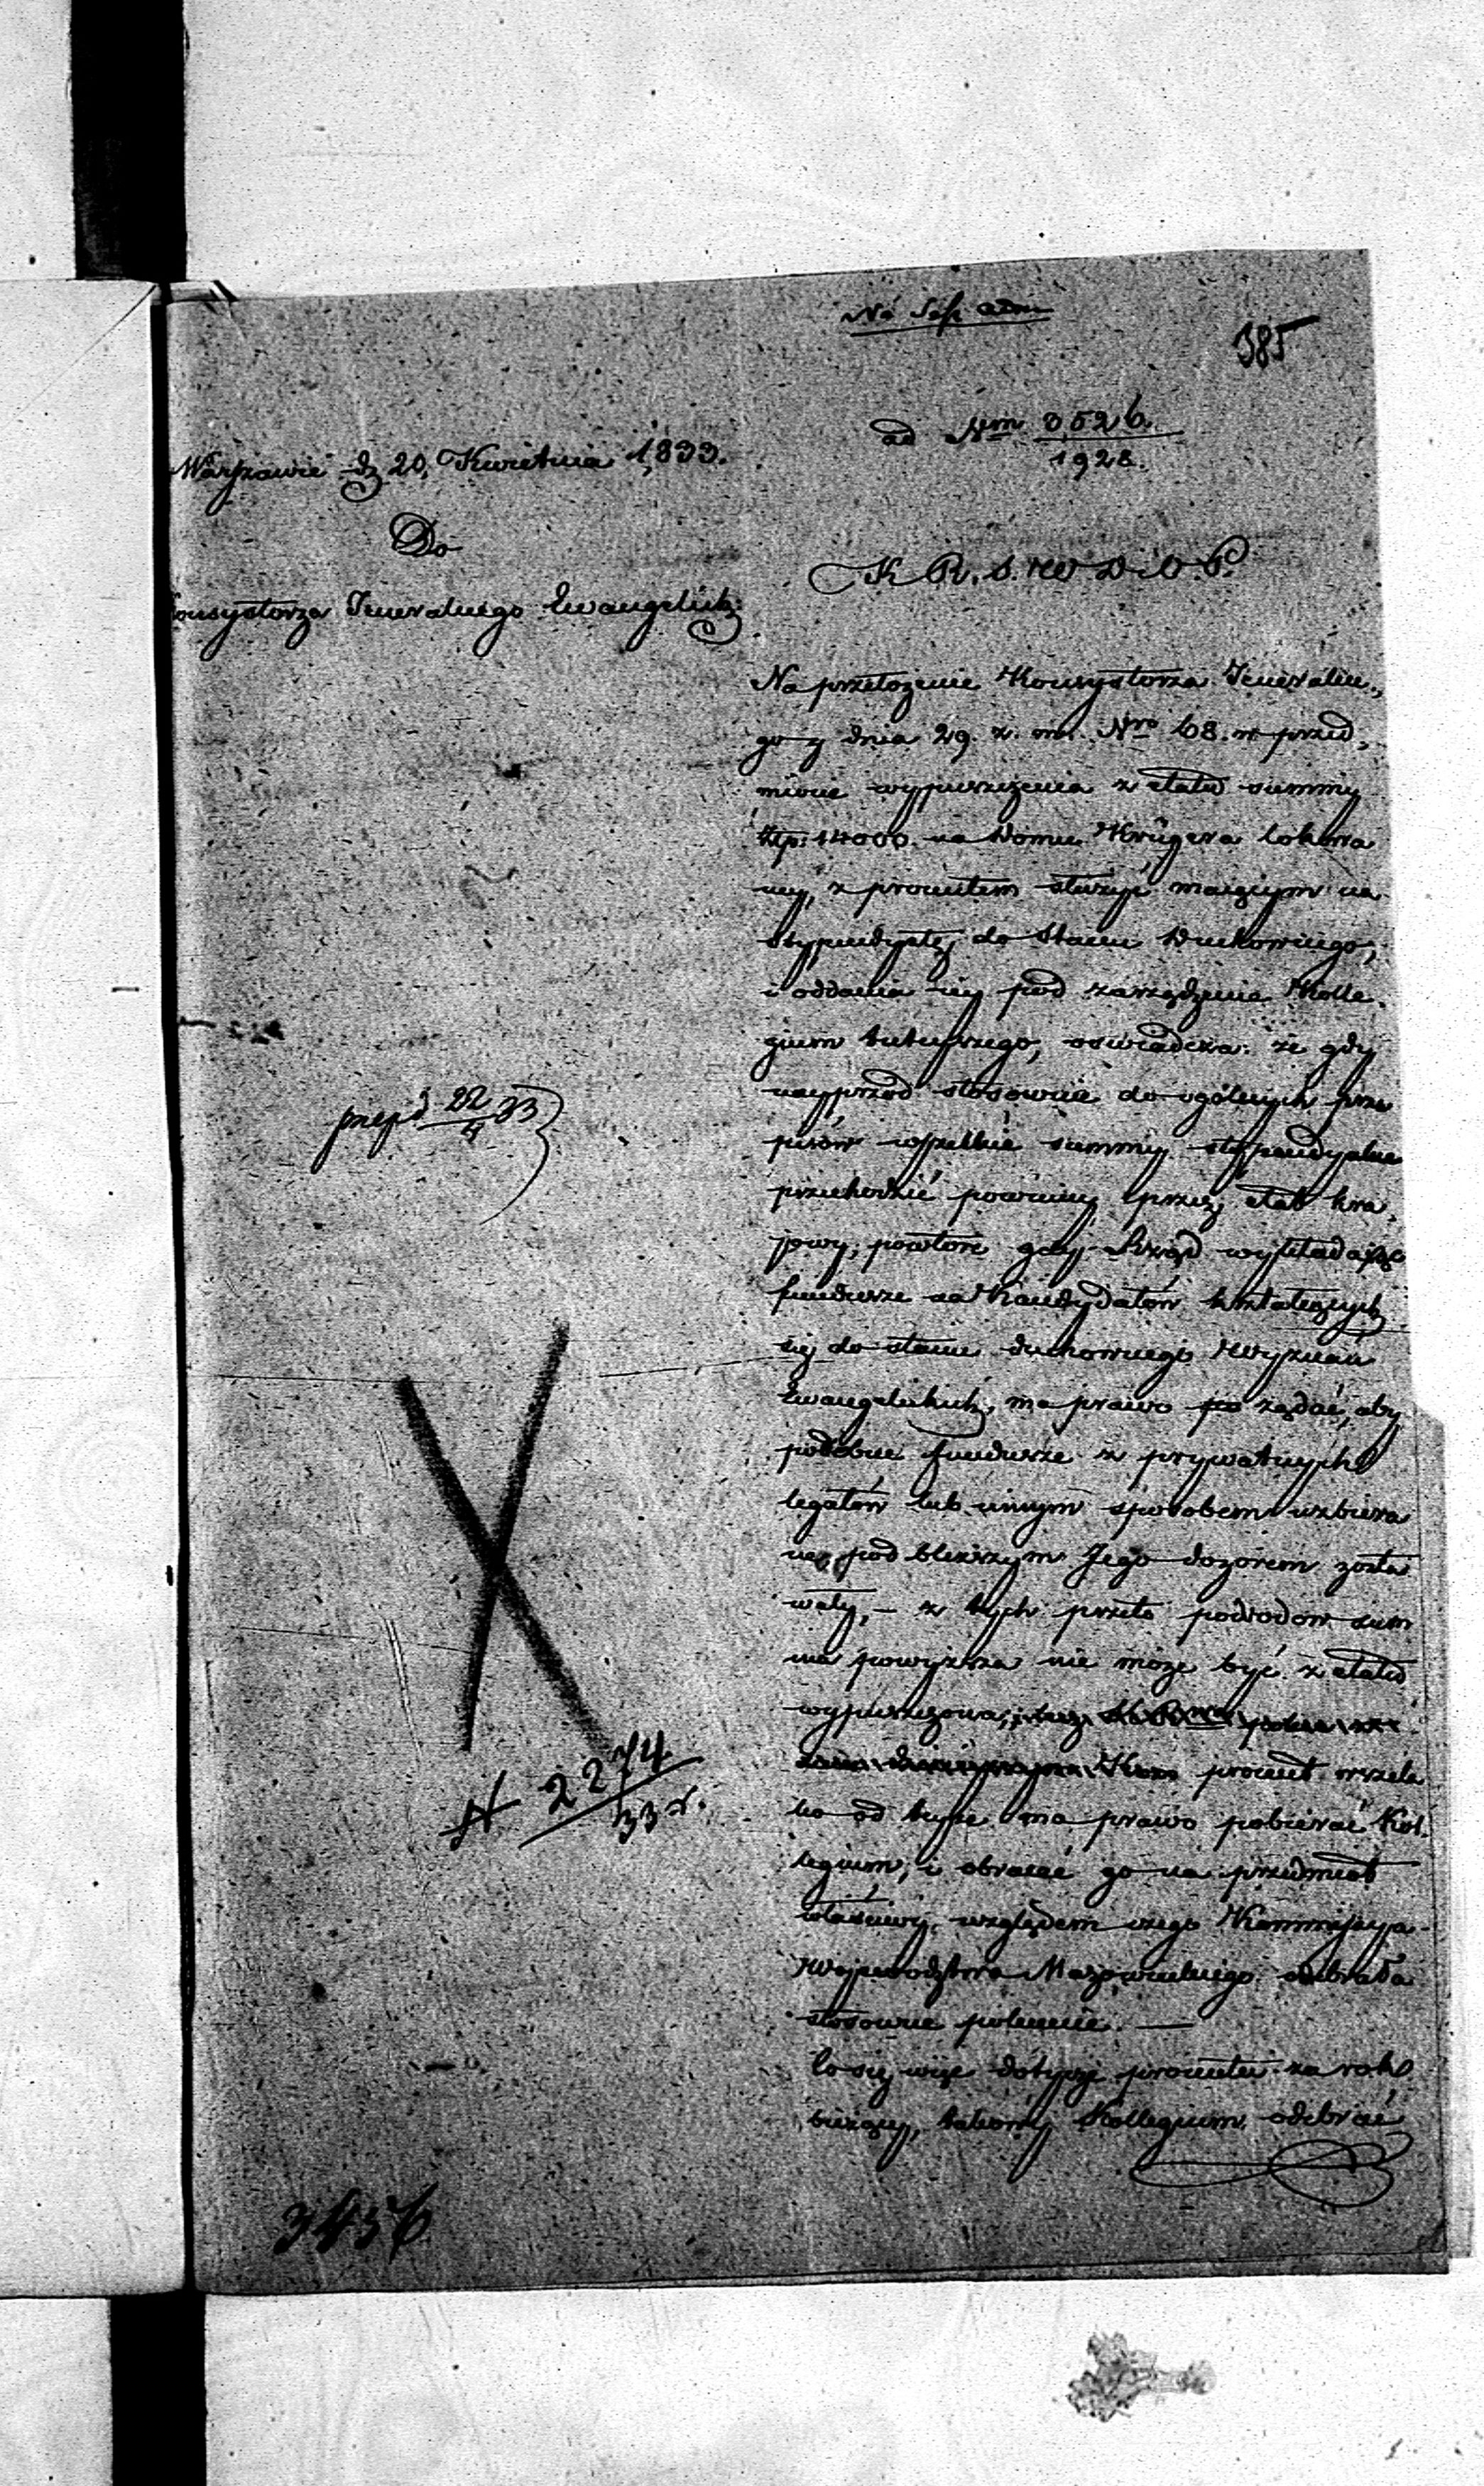 385
ad Nrm 3526
1928.
Warszawie d. 20. Kwietnia 1833.
Do
Konsystorza Jeneralnego Ewangelick:
K. R. S. W. D. i O. P.
Na przełożenie Konsystorza Jeneralne,,
go z dnia 29. z. m. Nro 68. w przed,
miocie wypuszczenia z etatu summy
Złp: 14000. na Domu Krügera lokowa
ney, z procentem służyć maiącym na
stypendystę do Stanu Duchownego,
i oddania iey pod zarządzenie Kolle,
gium tuteyszego, oświadcza: że gdy
nayprzód stosownie do ogólnych prze
pisów wszelkie summy stypendyalne
przechodzić powinny przez etat kra,
jowy; powtóre gdy Rząd wykładając
fundusze na Kandydatów kształcących
się do stanu duchownego Wyznań
Ewangelickich, ma prawo żądać, aby
podobne fundusze z prywatnych
legatów lub innym sposobem uzbiera
ne, pod bliższym Jego dozorem zosta
wały, – z tych przeto powodów sum
ma powyższa nie może być z etatu
wypuszczona;
procent wszela
ko od teyże ma prawo pobierać Kol,
legium, i obracać go na przedmiot
właściwy, względem czego Kommissya
Województwa Mazowieckiego odebrała
stosowne polecenie. —
Co się więc dotycze procentu za rok
bieżący, takowy Kollegium odebrać
przep d 22/4 33
N 2274
33 r.
3456